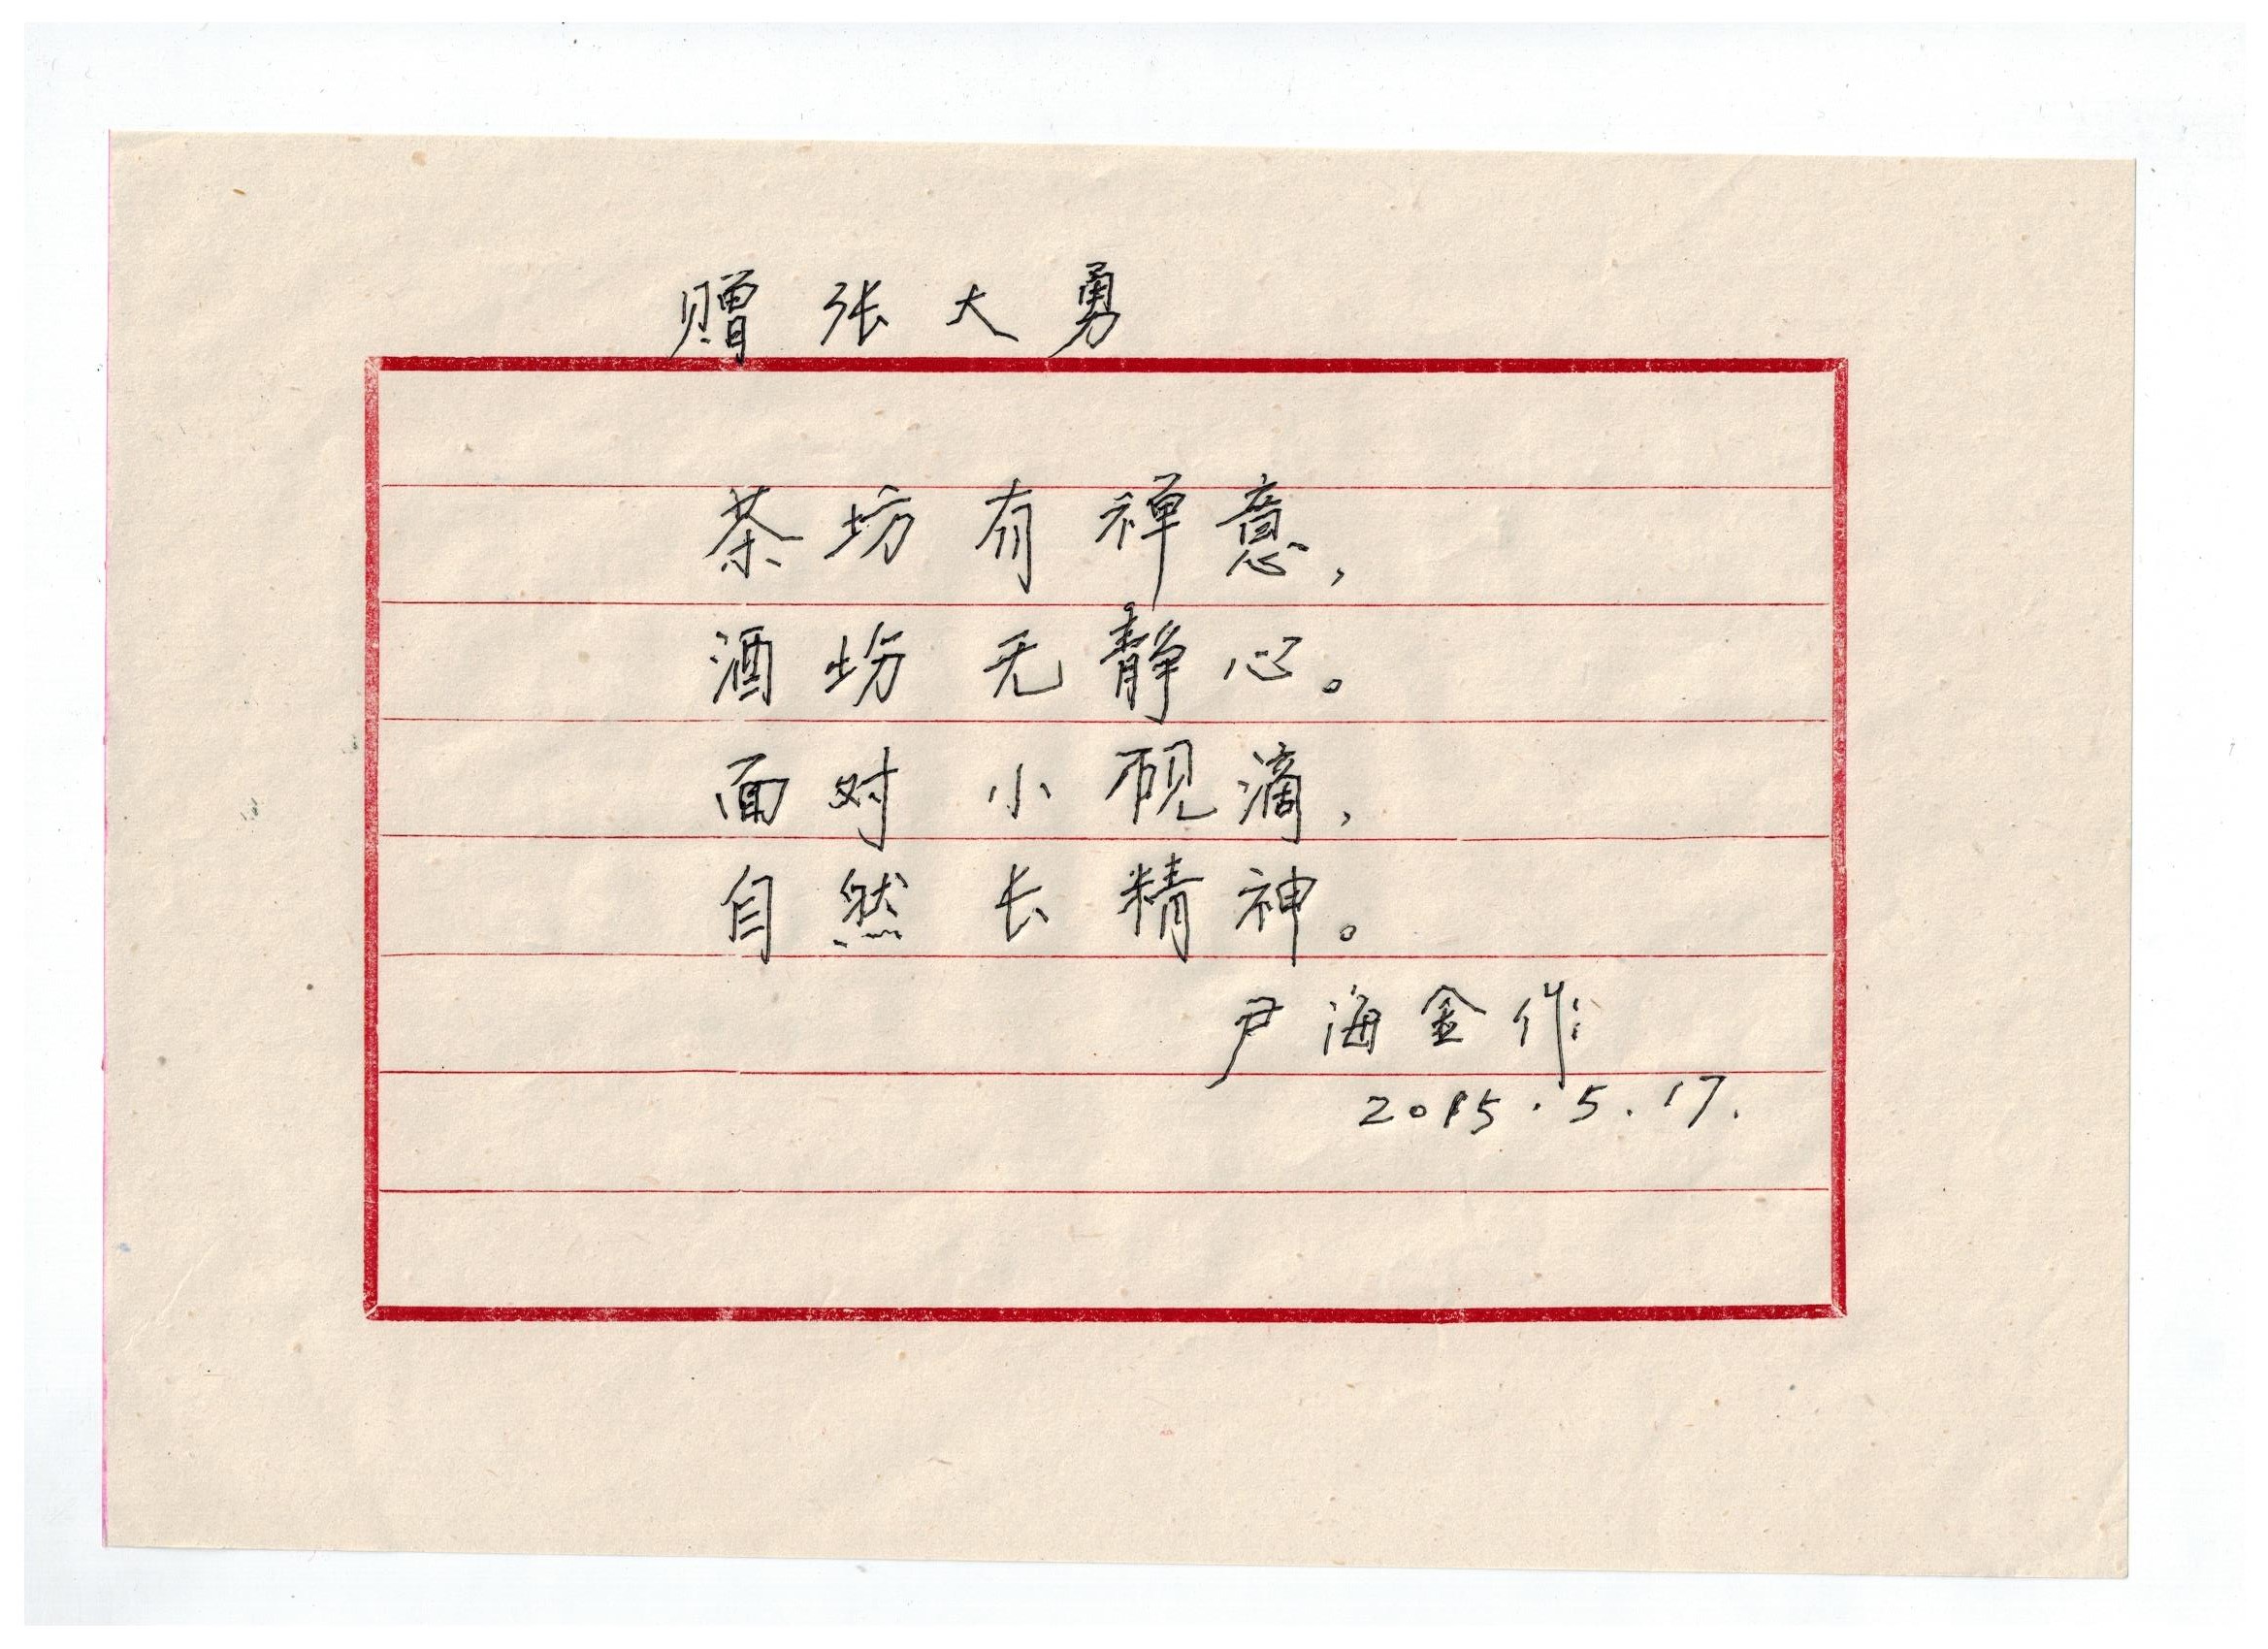 赠张大勇
茶坊有禅意，
酒坊无静心。
面对小砚滴，
自然长精神。
尹海金作
2015.5.17.